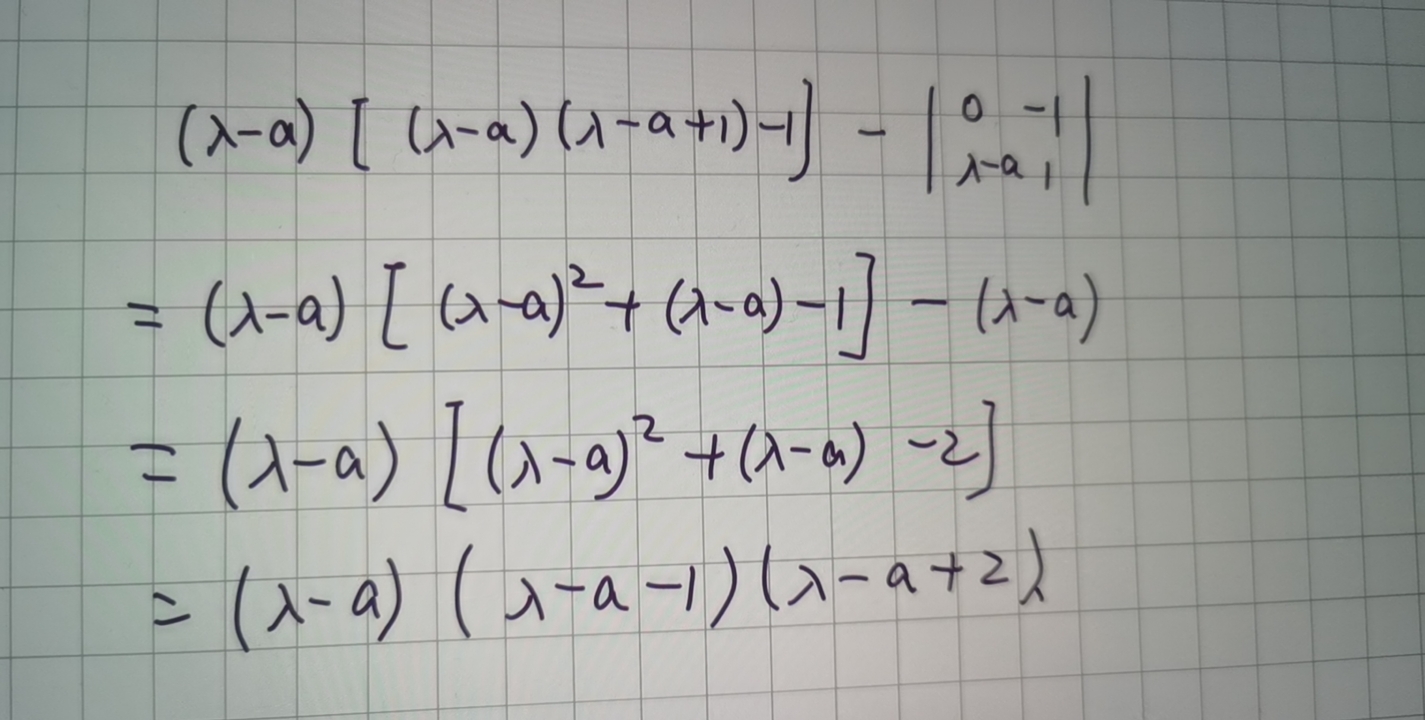 (λ-a) [ (λ-a) (λ-a+1) -1] - | 0 -1 ; λ-a 1 |
= (λ-a) [ (λ-a)² + (λ-a) -1] - (λ-a)
= (λ-a) [(λ-a)² + (λ-a) -2]
= (λ-a) (λ-a-1) (λ-a+2)